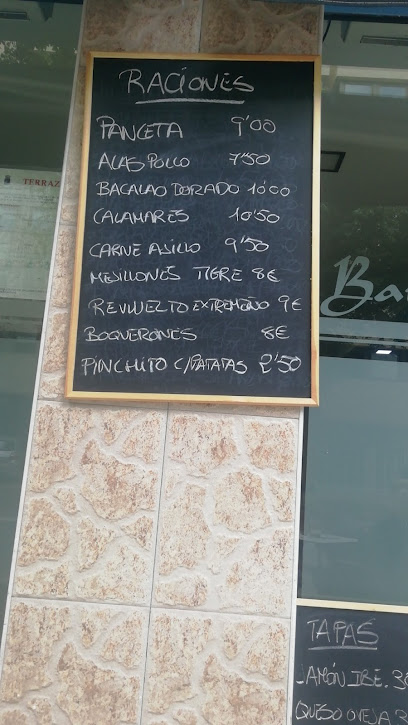 RACIONES
PANCETA 9'00
ALAS POLLO 7'50
BACALAO DORADO 10'00
CALAMARES 10'50
CARNE AJILLO 9'50
MEJILLONES TIGRE 8€
REVUELTO EXTREMEÑO 9€
BOQUERONES 8€
PINCHITO C/PATATAS 2'50
TERRAZ
Ba
TAPAS
JAMÓN IBE.
QUESO OVEJA